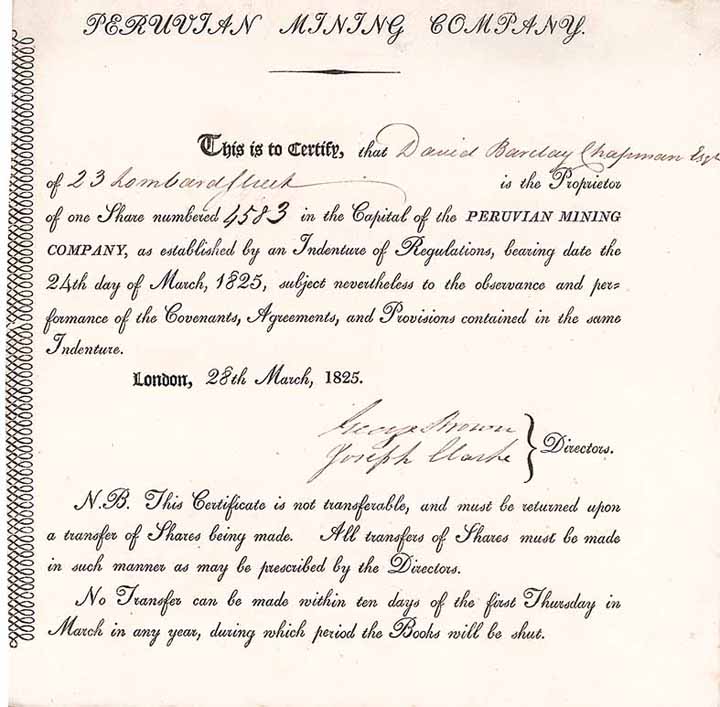 PERUVIAN MINING COMPANY.
This is to Certify, that David Barclay Chapman Esqr
of 23 Lombard Street is the Proprietor
of one Share numbered 4583 in the Capital of the PERUVIAN MINING
COMPANY, as established by an Indenture of Regulations, bearing date the
24th day of March, 1825, subject nevertheless to the observance and per=
formance of the Covenants, Agreements, and Provisions contained in the same
Indenture.
London, 28th March, 1825.
George Brown
Joseph Clarke } Directors.
N.B. This Certificate is not transferable, and must be returned upon
a transfer of Shares being made. All transfers of Shares must be made
in such manner as may be prescribed by the Directors.
No Transfer can be made within ten days of the first Thursday in
March in any year, during which period the Books will be shut.